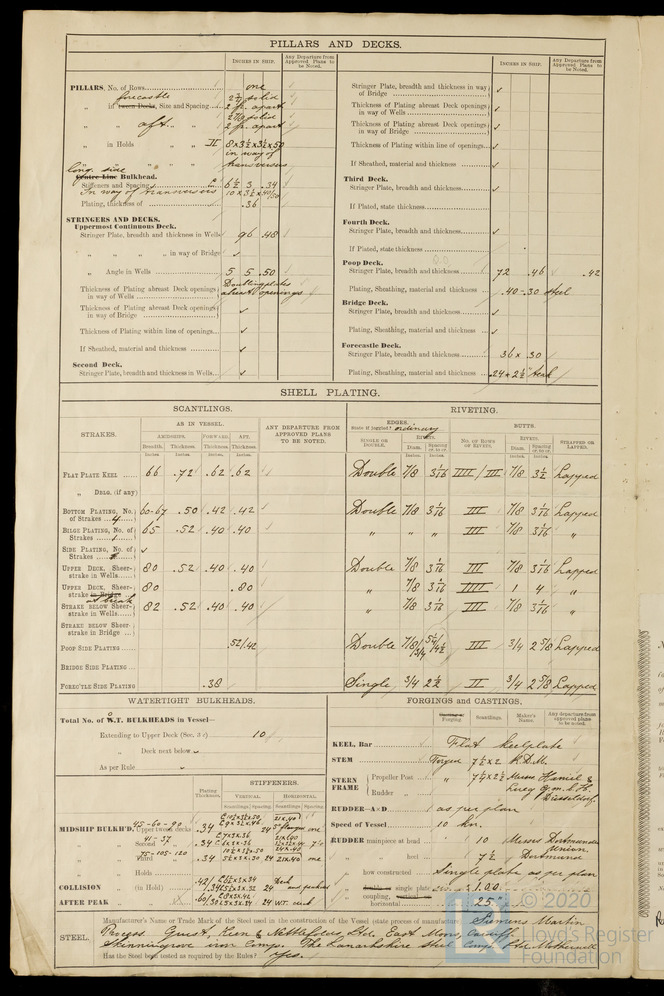 PILLARS AND DECKS.
INCHES IN SHIP. Any Departure from Approved Plans to be Noted.
PILLARS, No. of Rows one
forecastle
„ in Tween Decks, Size and Spacing 2¾ solid
2 fr. apart
„ aft „ 2⅞ solid
2 fr. apart
„ in Holds „ 8 x 3½ x 3½ x 50
in way of
transverses
long. side
Centre Line Bulkhead.
Stiffeners and Spacing 6½ 3 .34
In way of transverses 10 x 3½ x 40/50
Plating, thickness of .36
STRINGERS AND DECKS.
Uppermost Continuous Deck.
Stringer Plate, breadth and thickness in Wells 96 .48
„ „ „ in way of Bridge
„ Angle in Wells 5 5 .50
Thickness of Plating abreast Deck openings in way of Wells Doubling plates
abreast openings
Thickness of Plating abreast Deck openings in way of Bridge
Thickness of Plating within line of openings
If Sheathed, material and thickness
Second Deck.
Stringer Plate, breadth and thickness in Wells
INCHES IN SHIP. Any Departure from Approved Plans to be Noted.
Stringer Plate, breadth and thickness in way of Bridge
Thickness of Plating abreast Deck openings in way of Wells
Thickness of Plating abreast Deck openings in way of Bridge
Thickness of Plating within line of openings
If Sheathed, material and thickness
Third Deck.
Stringer Plate, breadth and thickness
If Plated, state thickness
Fourth Deck.
Stringer Plate, breadth and thickness
If Plated, state thickness
Poop Deck.
Stringer Plate, breadth and thickness 72 .46 .42
Plating, Sheathing, material and thickness .40-.30 steel
Bridge Deck.
Stringer Plate, breadth and thickness
Plating, Sheathing, material and thickness
Forecastle Deck.
Stringer Plate, breadth and thickness 36 x .30
Plating, Sheathing, material and thickness .24 + 2½" teak
SHELL PLATING.
SCANTLINGS. RIVETING.
STRAKES. AS IN VESSEL. ANY DEPARTURE FROM APPROVED PLANS TO BE NOTED. EDGES. ordinary BUTTS.
AMIDSHIPS. FORWARD. AFT. SINGLE OR DOUBLE. RIVETS. No. OF ROWS OF RIVETS. RIVETS. STRAPPED OR LAPPED.
Breadth. Thickness. Thickness. Thickness. Diam. Spacing cr. to cr. Diam. Spacing cr. to cr.
FLAT PLATE KEEL 66 .72 .62 .62 Double 7/8 3 1/16 IIII / III 7/8 3½ Lapped
„ DBLG. (if any)
BOTTOM PLATING, No. of Strakes 4 60-67 .50 .42 .42 Double 7/8 3 1/16 III 7/8 3 1/16 Lapped
BILGE PLATING, No. of Strakes 65 .52 .40 .40 „ „ „ III 7/8 3 1/16 „
SIDE PLATING, No. of Strakes
UPPER DECK, Sheer-strake in Wells 80 .52 .40 .40 Double 7/8 3 1/16 III 7/8 3 1/16 Lapped
UPPER DECK, Sheer-strake in Bridge at break 80 .80 „ 7/8 3 1/16 IIII 1 4 „
STRAKE BELOW Sheer-strake in Wells 82 .52 .40 .40 „ 7/8 3 1/16 III 7/8 3 1/16 „
STRAKE BELOW Sheer-strake in Bridge
POOP SIDE PLATING .52/.42 Double 7/8 3/4 III 3/4 2 5/8 Lapped
BRIDGE SIDE PLATING
FOREC'TLE SIDE PLATING .38 Single 3/4 2½ II 3/4 2 5/8 Lapped
WATERTIGHT BULKHEADS.
Total No. of W.T. BULKHEADS in Vessel—
Extending to Upper Deck (Sec. 3 c) 10
„ Deck next below
As per Rule
Plating Thickness. STIFFENERS.
VERTICAL. HORIZONTAL.
Scantlings. Spacing. Scantlings. Spacing.
45-60-90
MIDSHIP BULKH'D, Upper tween decks .34 24 one
41-57
„ Second „ .34
75-105-120
„ Third „ .34 24 21x40 one
„ Holds
COLLISION „ (in Hold) 24
AFTER PEAK „ 24 W.T.
FORGINGS AND CASTINGS.
Casting or Forging Scantlings. Maker's Name. Any departure from approved plans to be noted.
KEEL, Bar Flat keelplate
STEM Forged 7½ x 2
STERN FRAME Propeller Post „ 7½ x 2½ Messrs Haniel &
Rudder „ Lueg G.m.b.H.
Düsseldorf
RUDDER—A×D as per plan
Speed of Vessel 10 kn.
RUDDER mainpiece at head 10 Messrs Dortmunder
Union
„ heel 7½ Dortmund
„ how constructed Single plate as per plan
„ double or single plate 1.00
„ coupling, vertical or horizontal 25"
STEEL. Manufacturer's Name or Trade Mark of the Steel used in the construction of the Vessel (state process of manufacture) Siemens Martin
Process. Guest, Keen & Nettlefolds, Ltd. East Moors, Cardiff.
Skinningrove iron Comp. The Lanarkshire Steel Comp. Ltd. Motherwell
Has the Steel been tested as required by the Rules? Yes.
© 2020
Lloyd's Register
Foundation